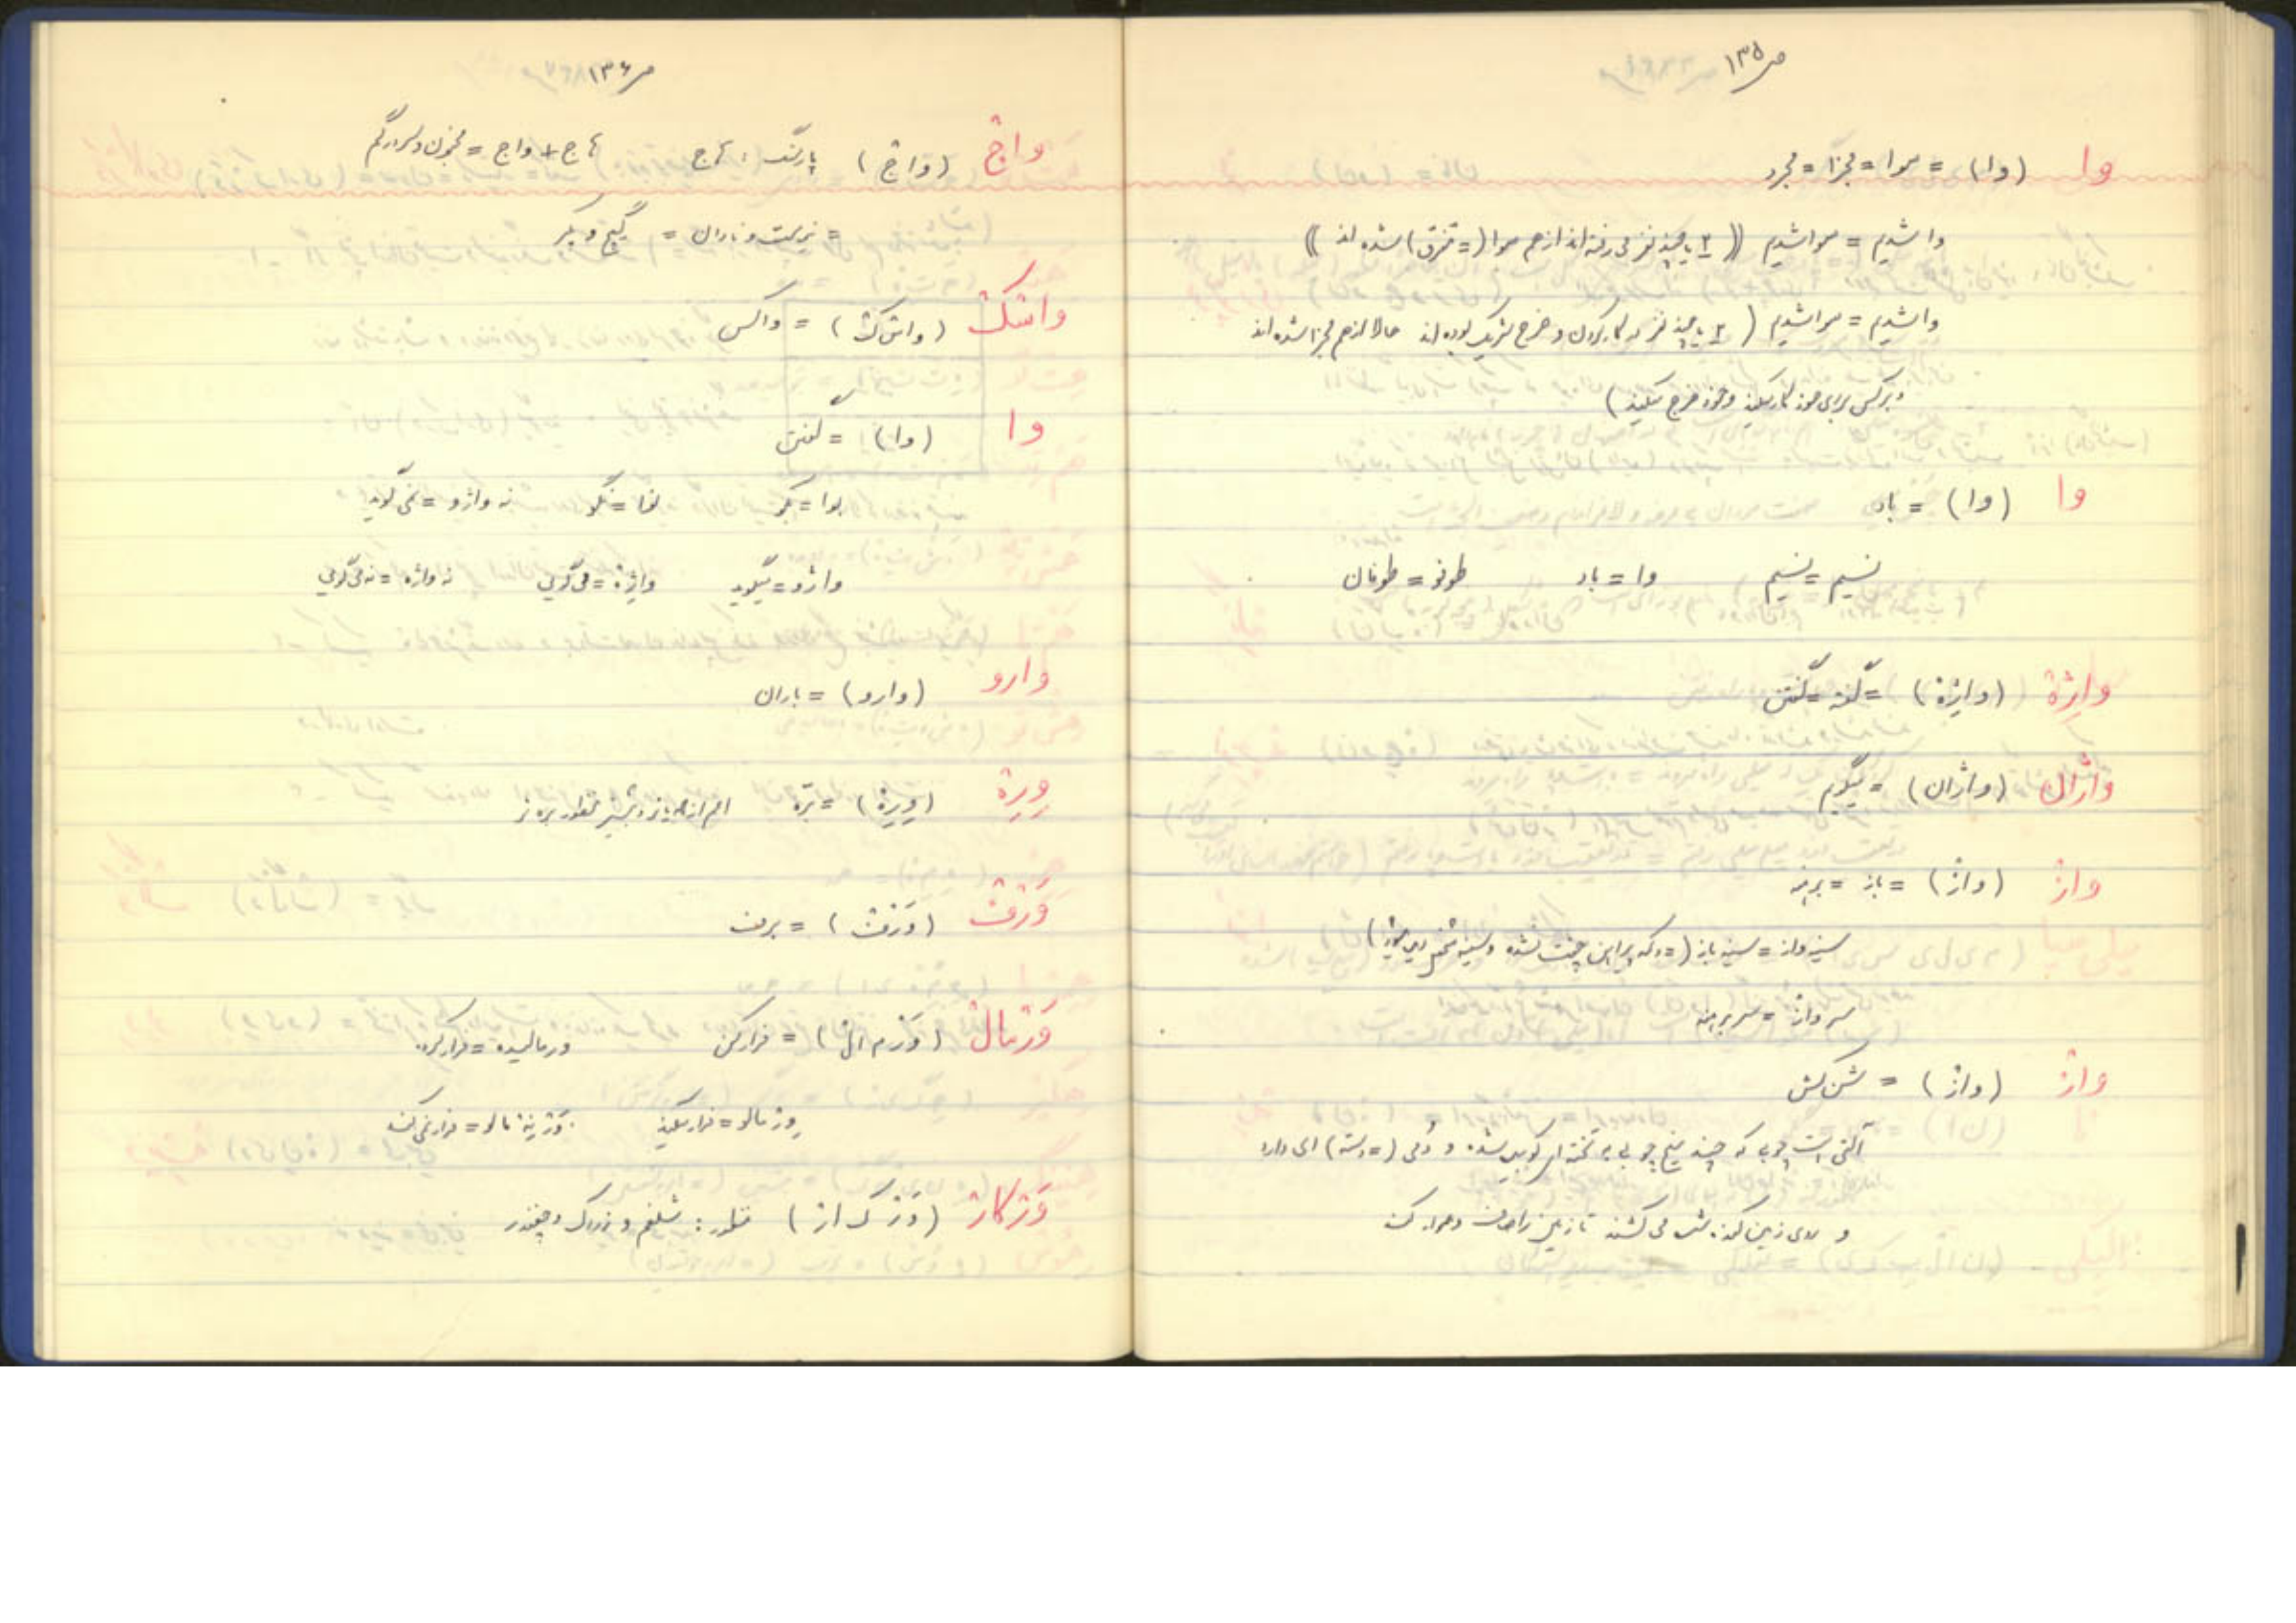 ص ۱۳۵
وا (وا) = سوا = مجزا = مجرد
وا شدیم = سوا شدیم (( ۲ یا چند نفر می رفته اند از هم سوا (= متفرق) شده اند ))
وا شدیم = سوا شدیم ( ۲ یا چند نفر در کار کردن و خرج شریک بوده اند حالا از هم مجزا شده اند
و هر کس برای خود کار میکند و خود خرج میکند )
وا (وا) = باد
نسیم = نسیم وا = باد طوفو = طوفان
واژة (واژة) = گفته = گفتن
واژان (واژان) = میگویم
واژ (واژ) = باز = برهنه
سینه واز = سینه باز ( = دکمه پیراهن چفت نشده و سینه شخص دیده میشود )
سر واز = سر برهنه
واژ (واژ) = شن کش
آلتی است چوبی که چند میخ چوبی به تخته ای کوبیده شده و دُمی (= دسته) ای دارد
و روی زمین کنده شده می کشند تا زمین را صاف و هموار کند
ص ۱۳۶
واج (واج) پارسنگ : هاج هاج + واج = مجنون و سردرگم
= گیج و پکر
واشک (واش ک) = واکس
وا (وا) = گفتن
بوا = بگو نوا = نگو نه واژو = نمی گوید
واژو = میگوید واژة = می گویی نه واژه = نمی گویی
وارو (وارو) = باران
وِرة (وِرة) = برّه اعم از
وَرف (وَرف) = برف
وَرمال (وَر م ال) = فرار کن ورمالیده = فرار کرده
ورمالو = فرار میکند وَرنِمالو = فرار نمی کند
وَرکار (وَر ک ار) منظور : شلغم و زردک و چغندر